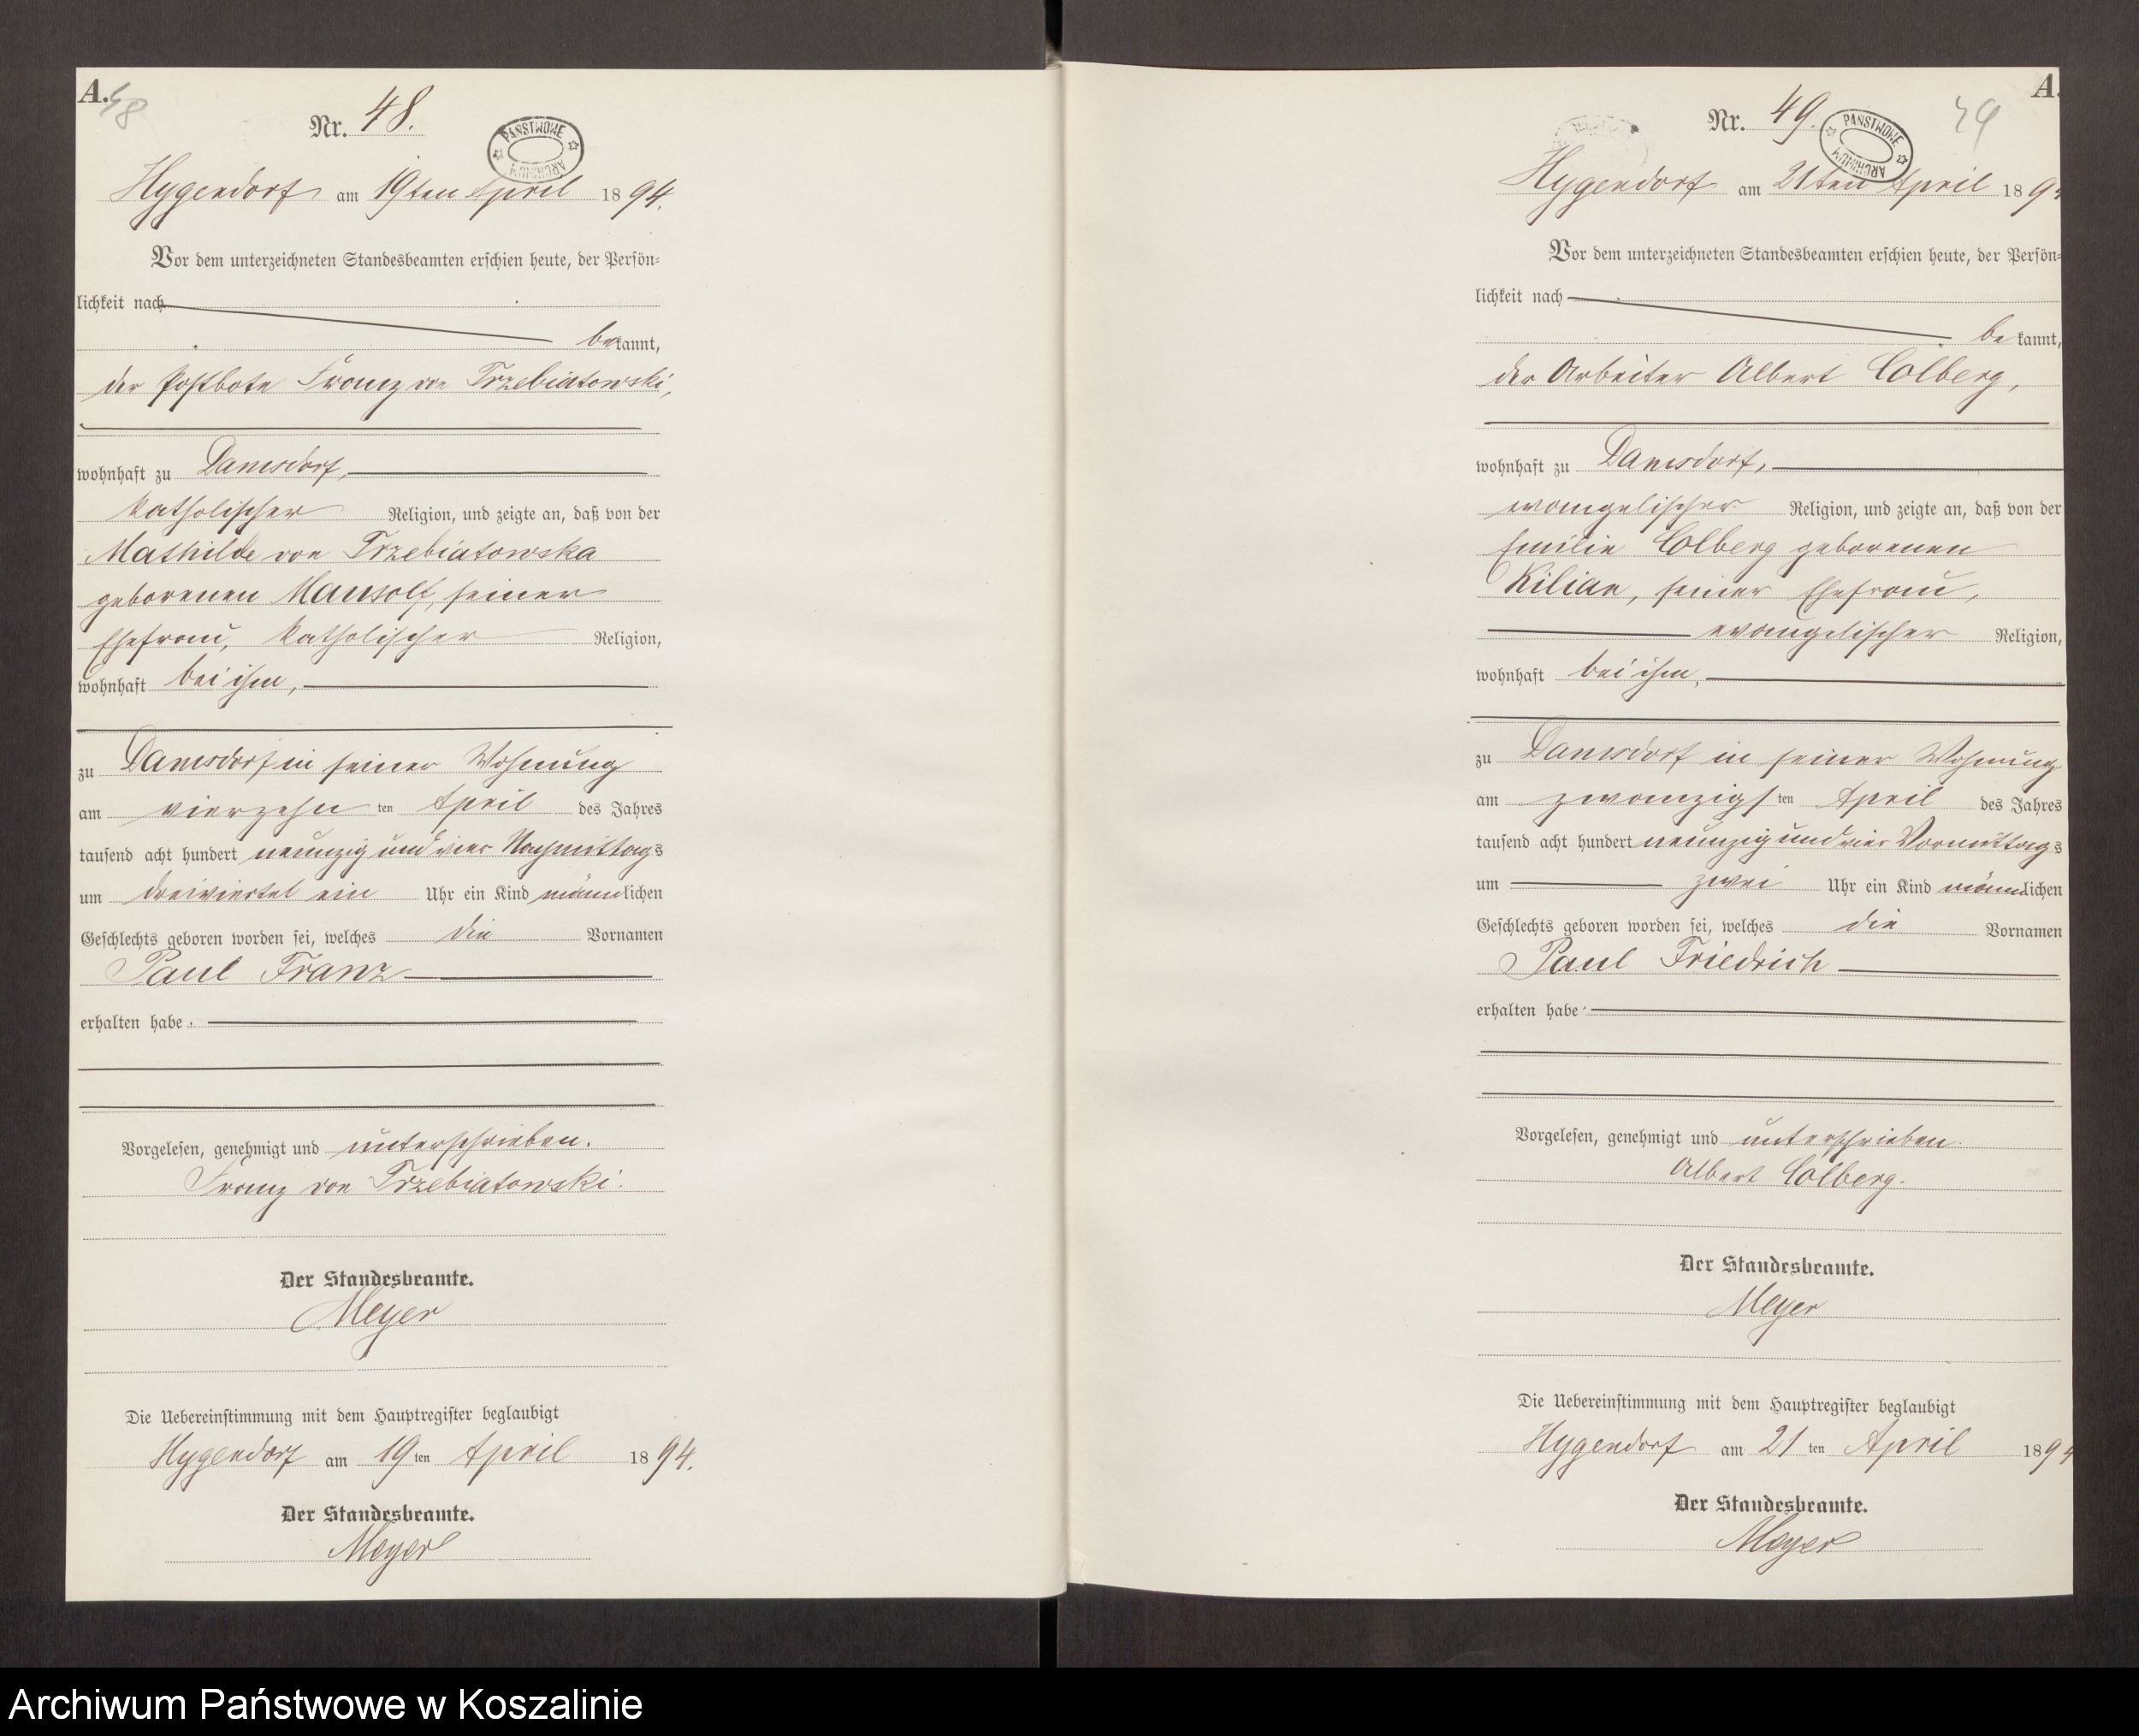 A. 48
Nr. 48.
PAŃSTWOWE ARCHIWUM
Hygendorf am 19ten April 1894.
Vor dem unterzeichneten Standesbeamten erschien heute, der Persön-
lichkeit nach
bekannt,
der Postbote Franz von Trzebiatowski,
wohnhaft zu Damsdorf,
katholischer Religion, und zeigte an, daß von der
Mathilde von Trzebiatowska
geborenen Mausolf, seiner
Ehefrau, katholischer Religion,
wohnhaft bei ihm,
zu Damsdorf in seiner Wohnung
am vierzehnten April des Jahres
tausend acht hundert neunzig und vier Nachmittags
um dreiviertel ein Uhr ein Kind männlichen
Geschlechts geboren worden sei, welches die Vornamen
Paul Franz
erhalten habe.
Vorgelesen, genehmigt und unterschrieben.
Franz von Trzebiatowski.
Der Standesbeamte.
Meyer
Die Uebereinstimmung mit dem Hauptregister beglaubigt
Hygendorf am 19ten April 1894.
Der Standesbeamte.
Meyer
A.
Nr. 49.
49
PAŃSTWOWE ARCHIWUM
Hygendorf am 21ten April 1894
Vor dem unterzeichneten Standesbeamten erschien heute, der Persön-
lichkeit nach
bekannt,
der Arbeiter Albert Colberg,
wohnhaft zu Damsdorf,
evangelischer Religion, und zeigte an, daß von der
Emilie Colberg geborenen
Kilian, seiner Ehefrau,
evangelischer Religion,
wohnhaft bei ihm,
zu Damsdorf in seiner Wohnung
am zwanzigsten April des Jahres
tausend acht hundert neunzig und vier Vormittags
um zwei Uhr ein Kind männlichen
Geschlechts geboren worden sei, welches die Vornamen
Paul Friedrich
erhalten habe.
Vorgelesen, genehmigt und unterschrieben.
Albert Colberg.
Der Standesbeamte.
Meyer
Die Uebereinstimmung mit dem Hauptregister beglaubigt
Hygendorf am 21ten April 1894
Der Standesbeamte.
Meyer
Archiwum Państwowe w Koszalinie